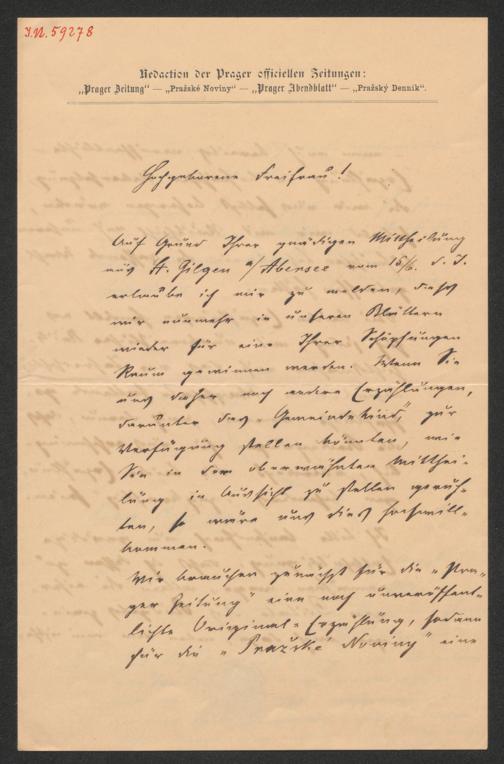 I.N. 59278
Redaction der Prager officiellen Zeitungen:
„Prager Zeitung“ — „Pražské Noviny“ — „Prager Abendblatt“ — „Pražský Denník“.
Hochgeborene Freifrau!
Auf Grund Ihrer gnädigen Mittheilung
aus St. Gilgen a/Abersee vom 15/6. d. J.
erlaube ich mir zu melden, dass
wir nunmehr in unseren Blättern
wieder für eine Ihrer Schöpfungen
Raum gewinnen werden. Wenn Sie
uns daher noch andere Erzählungen,
darunter das „Gemeindekind“, zur
Verfügung stellen könnten, wie
Sie in der oberwähnten Mitthei-
lung in Aussicht zu stellen geruh-
ten, so wäre uns dies hochwill-
kommen.
Wir brauchen zunächst für die „Pra-
ger Zeitung“ eine noch unveröffent-
lichte Original-Erzählung, sodann
für die „Pražské Noviny“ eine